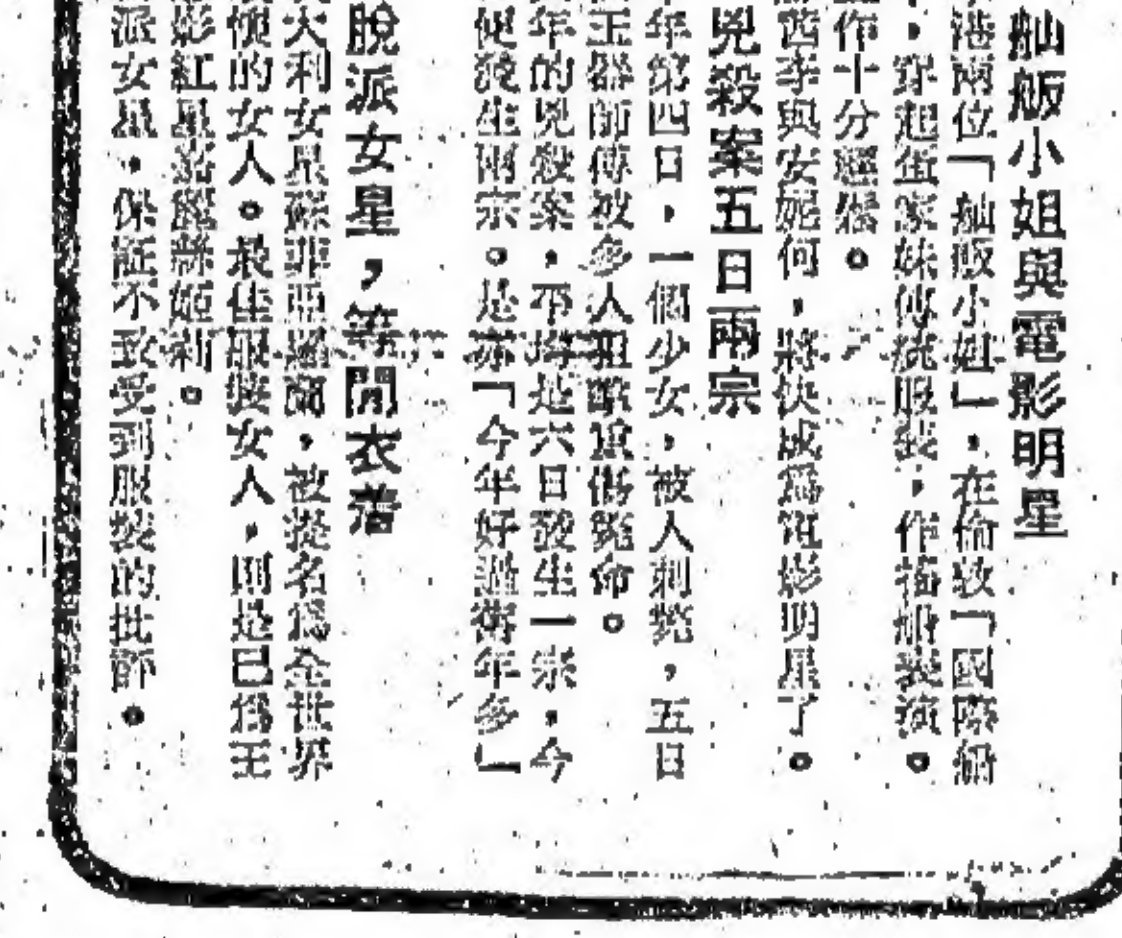 舢舨小姐與電影明星
港兩位「舢舨小姐」，在倫敦「國際船
，穿起蛋家妹傳統服裝，作搖船表演。
作十分輕鬆。
茜李與安妮何，將快成爲電影明星了。
兇殺案五日兩宗
年第四日，一個少女，被人刺斃，五日
玉器師傅被多人狙擊重傷斃命。
年的兇殺案，平均是六日發生一宗，今
便發生兩宗。是亦「今年好過舊年多」
脫派女星，等閒衣着
大利女星蘇菲亞羅蘭，被提名爲全世界
的女人。最佳服裝女人，則是已爲王
影紅星嘉麗絲姬莉。
派女星，保証不致受到服裝的批評。